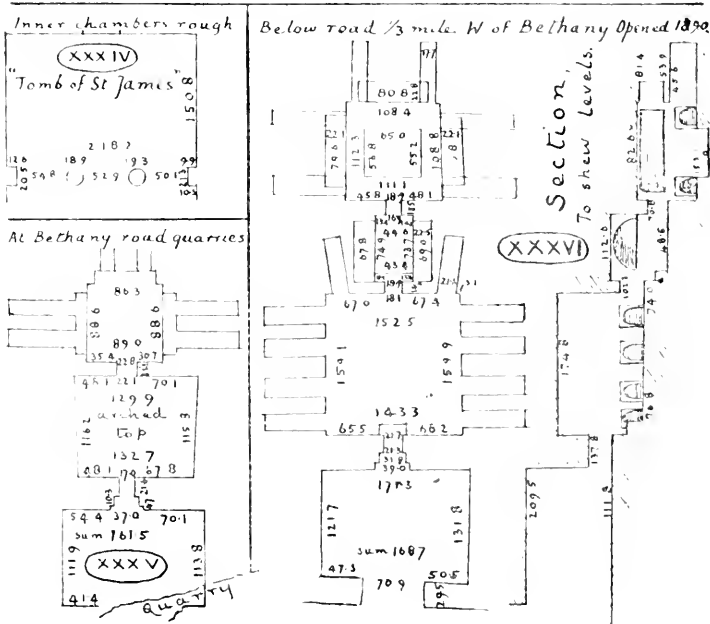 Inner chambers rough
XXXIV
"Tomb of St James"
1508
2187
126 189 193 99
205 548 529 501
At Bethany road quarries
863
988 988
890
354 228 307
481 221 701
1299
arched
top
1162 1153
1327
681 170 678
103 216 47
544 370 701
sum 161.5
1119 1138
XXXV
414
Quarry
Below road 1/3 mile W of Bethany Opened 1890.
177
808 228
1084
650
796 221 1123 568 552 1088 221
1111
458 187 481
678 749 446 737 690
434
199
181
670 674
1525
1591 1599
1433
655 662
217
213
318
390
1713
1217 1318
sum 1687
473 505
709 295
Section,
To shew levels.
XXXVI
814 539 456
826
112.6 48.6
740
1748
768
137.8
2095